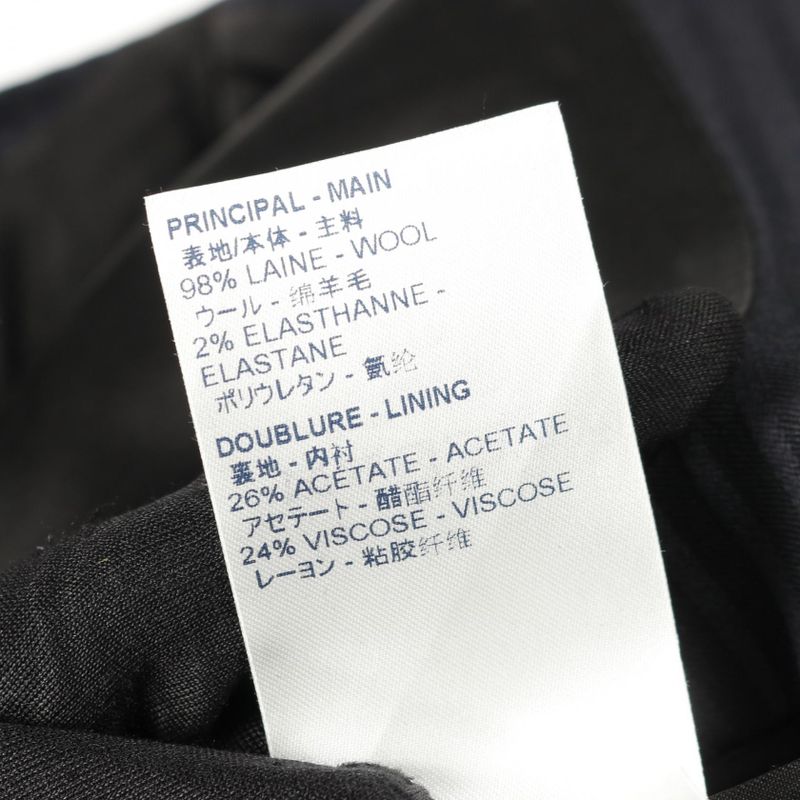 PRINCIPAL - MAIN
表地/本体 - 主料
98% LAINE - WOOL
ウール - 绵羊毛
2% ELASTHANNE -
ELASTANE
ポリウレタン - 氨纶
DOUBLURE - LINING
裏地 - 内衬
26% ACETATE - ACETATE
アセテート - 醋酯纤维
24% VISCOSE - VISCOSE
レーヨン - 粘胶纤维